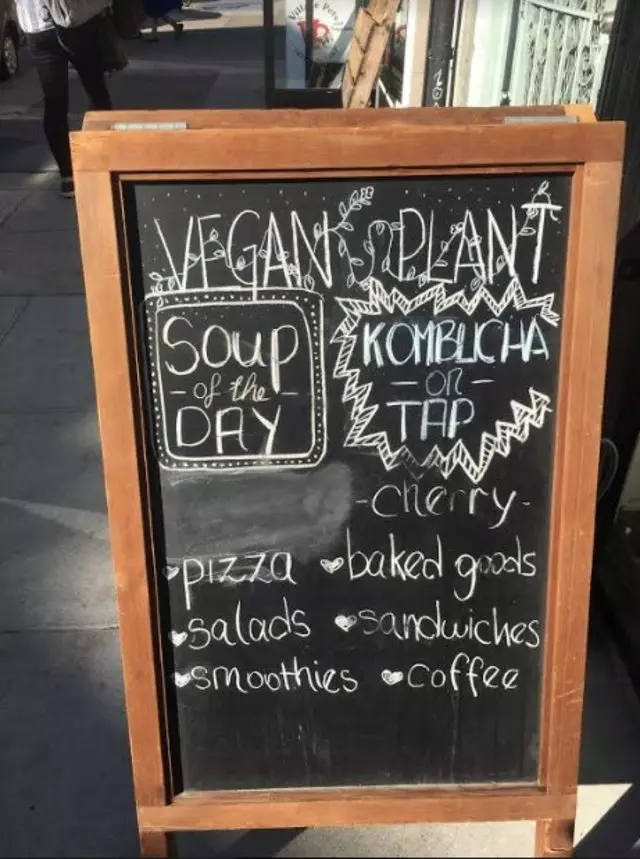 VEGAN PLANT
SOUP
- of the -
DAY
KOMBUCHA
- ON -
TAP
- cherry -
pizza
baked goods
salads
sandwiches
smoothies
coffee